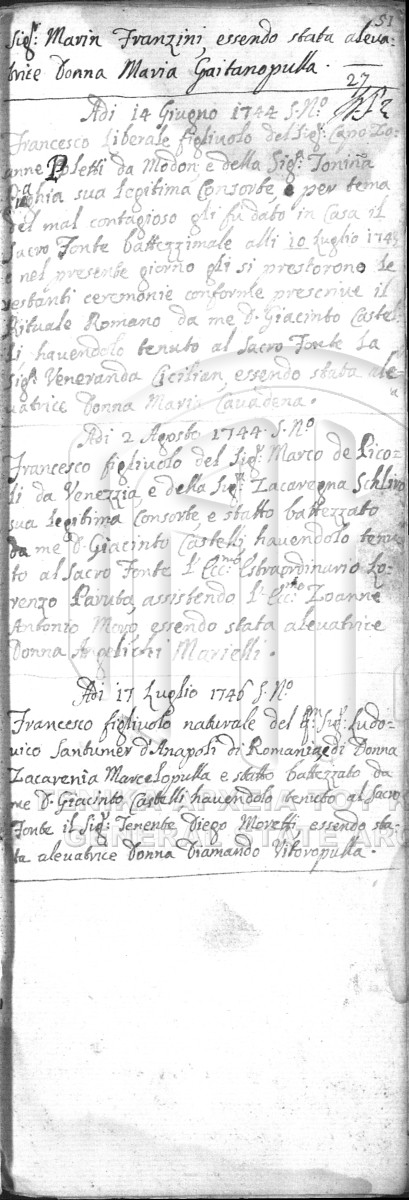 51
Sig.r Marin Franzini, essendo stata aleva:
trice Donna Maria Gaitanopulla.
27
Adi 14 Giugno 1744 S. N.o
Francesco Liberale figliuolo del Sig.r Capo Zo:
anne Poletti da Modon e della Sig.ra Tonina
sua legitima Consorte, e per tema
del mal contagioso gli fu dato in Casa il
Sacro Fonte battezzimale alli 10 Luglio 1743
e nel presente giorno gli si prestorono le
restanti ceremonie conforme prescrive il
Rituale Romano da me D. Giacinto Castel:
li, havendolo tenuto al Sacro Fonte la
Sig.ra Veneranda Cicilian, essendo stata ale:
vatrice Donna Maria Cavadena.
Adi 2 Agosto 1744. S. N.o
Francesco figliuolo del Sig.r Marco de Pico:
li da Venezzia, e della Sig.ra Zacaregna Schliro
sua legitima Consorte, e statto battezzato
da me D. Giacinto Castelli havendolo tenu:
to al Sacro Fonte l'Ecc.mo Estraordinario Lo:
renzo Paruta, assistendo l'Ecc.mo Zoanne
Antonio Moro, essendo stata alevatrice
Donna Angelichi Marielli.
Adi 17 Luglio 1746 S. N.o
Francesco figliuolo naturale del q.m Sig.r Ludo:
vico Santumer d'Anapoli di Romania, e di Donna
Zacarenia Marcelopulla e statto battezzato da
me D. Giacinto Castelli havendolo tenuto al Sacro
Fonte il Sig.r Tenente Diego Moretti, essendo sta:
ta alevatrice Donna Diamando Vitoropulla.
GENERAL STATE ARC